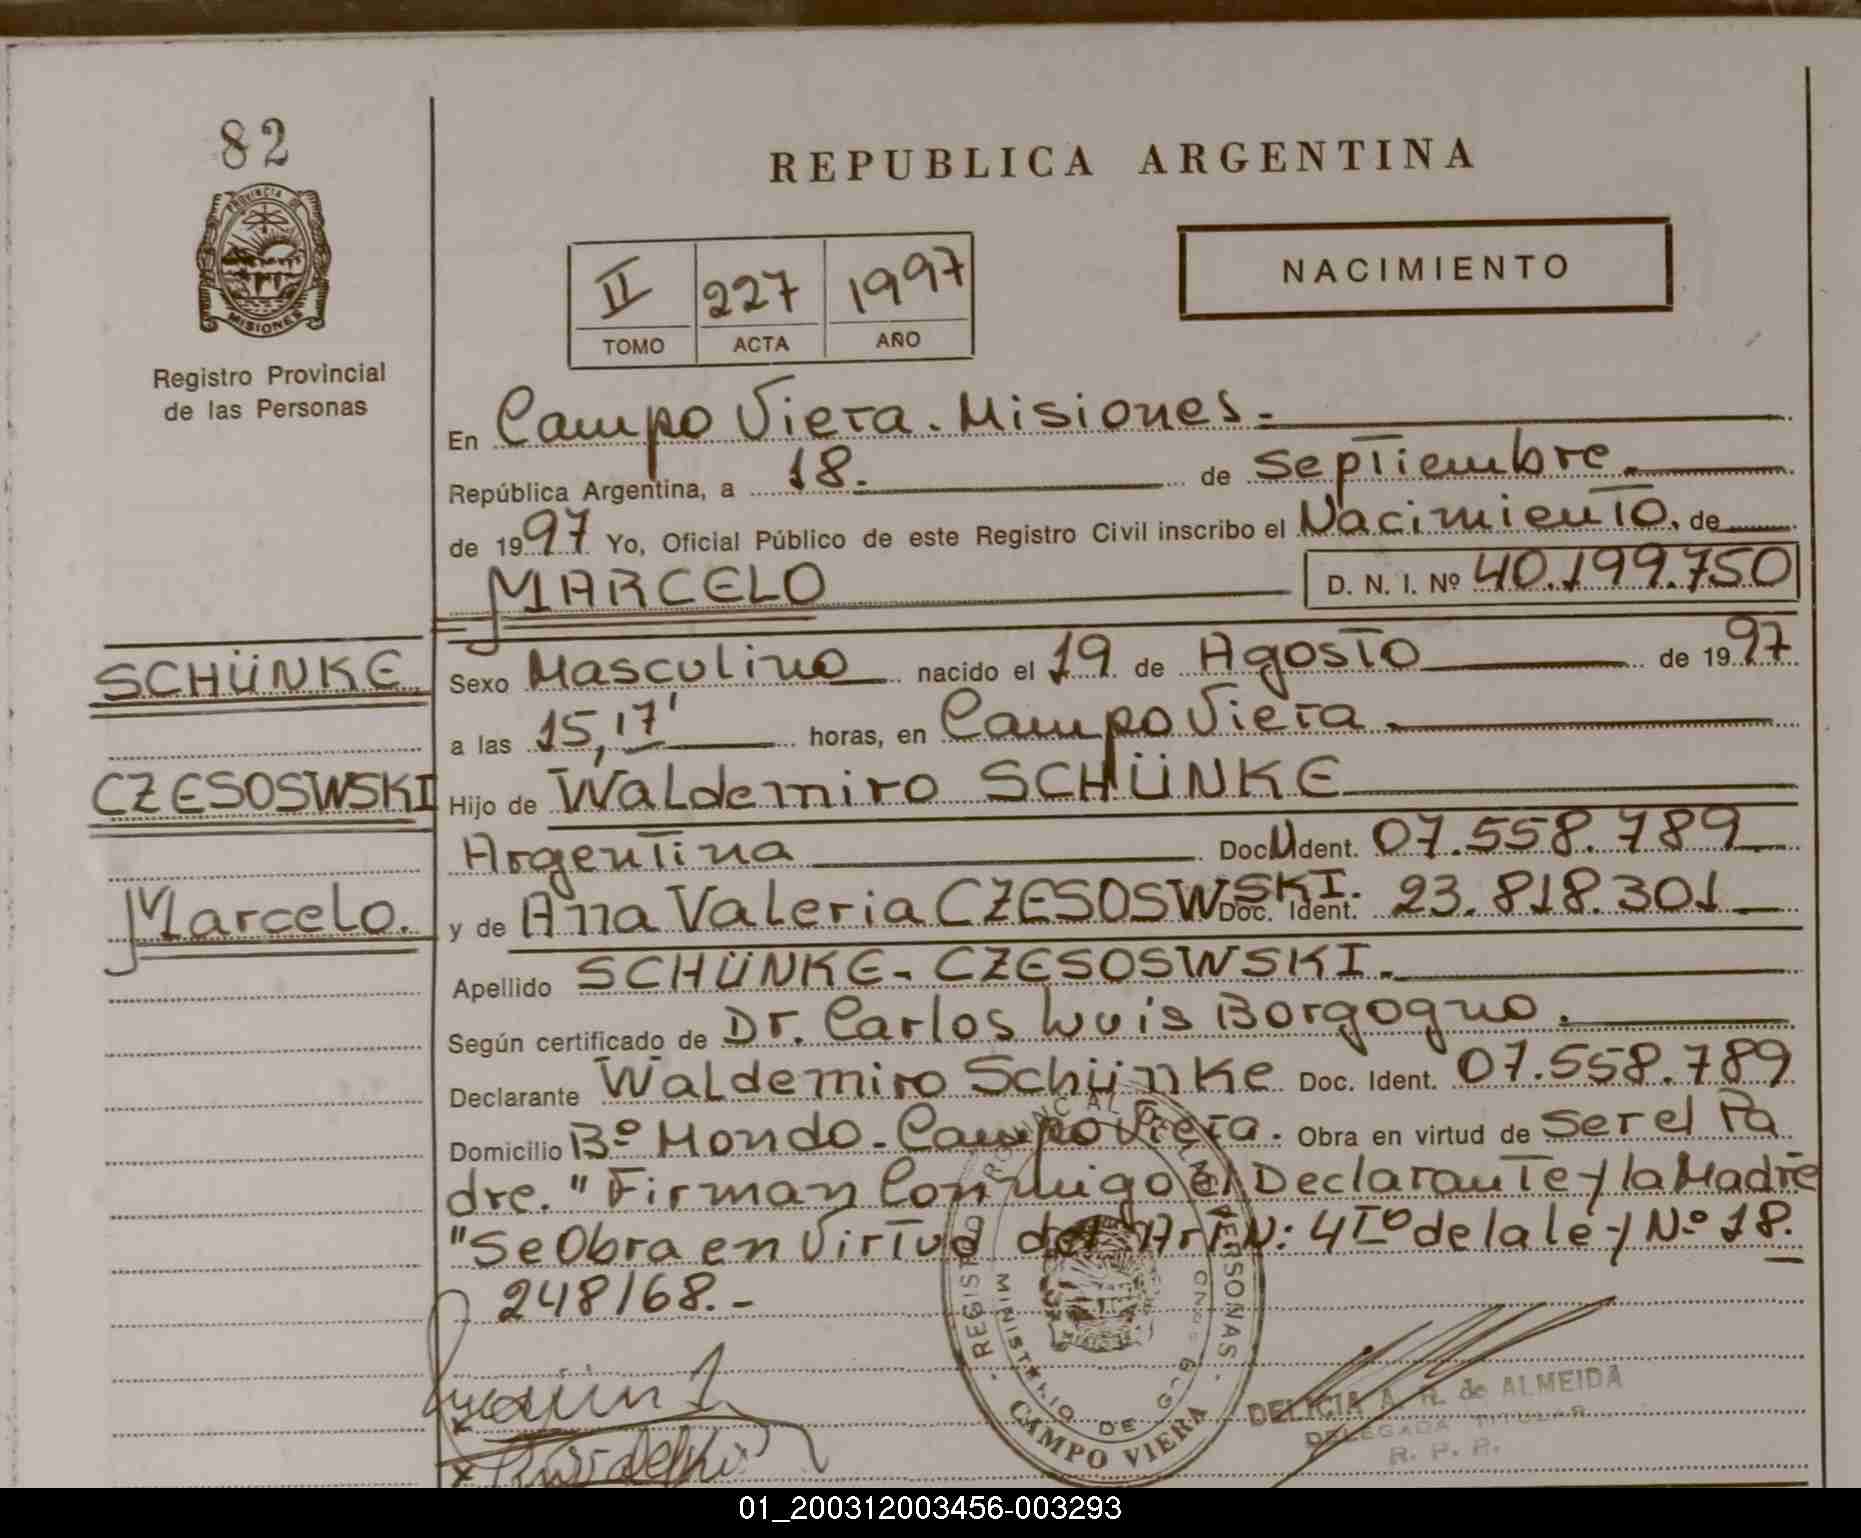 82
PROVINCIA DE
MISIONES
Registro Provincial
de las Personas
REPUBLICA ARGENTINA
NACIMIENTO
II 227 1997
TOMO ACTA AÑO
En Campo Viera. Misiones.-
República Argentina, a 18. de septiembre.
de 1997 Yo, Oficial Público de este Registro Civil inscribo el Nacimiento, de
MARCELO D. N. I. Nº 40.199.750
SCHÜNKE
CZESOSWSKI
Marcelo.
Sexo Masculino nacido el 19 de Agosto de 1997
a las 15,17' horas, en Campo Viera.
Hijo de Waldemiro SCHÜNKE
Argentina Doc. Ident. 07.558.789
y de Ana Valeria CZESOSWSKI. Doc. Ident. 23.818.301
Apellido SCHÜNKE - CZESOSWSKI.
Según certificado de Dr. Carlos Luis Borgogno.
Declarante Waldemiro Schünke Doc. Ident. 07.558.789
Domicilio Bº Mondo - Campo Viera. Obra en virtud de ser el Pa
dre. "Firman Conmigo el Declarante y la Madre
"Se Obra en Virtud del Art. N: 4Iº de la ley Nº 18.
248/68.-
REGISTRO PROVINCIAL DE LAS PERSONAS
MINISTERIO DE
CAMPO VIERA
DELICIA A. R. de ALMEIDA
DELEGADA TITULAR
R. P. P.
01_200312003456-003293